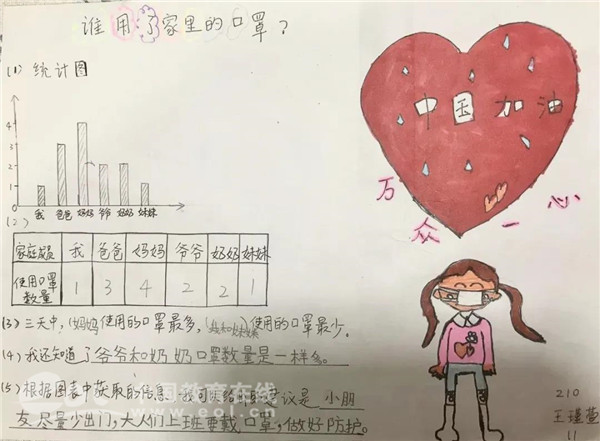 谁用了家里的口罩？
(1) 统计图
4
3
2
1
0
我 爸爸 妈妈 爷爷 奶奶 妹妹
(2)
家庭成员 我 爸爸 妈妈 爷爷 奶奶 妹妹
使用口罩数量 1 3 4 2 2 1
(3) 三天中，(妈妈)使用的口罩最多，(我和妹妹)使用的口罩最少。
(4) 我还知道了爷爷和奶奶口罩数量是一样多。
(5) 根据图表中获取的信息，我可以给的建议是 小朋
友尽量少出门，大人们上班要戴口罩，做好防护。
中国加油
万众一心
中国教育在线
www.eol.cn
210
王瑾萱
11